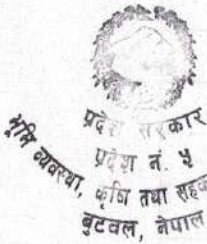 प्रदेश सरकार
प्रदेश नं. ५
भूमि व्यवस्था, कृषि तथा सहका
बुटवल, नेपाल